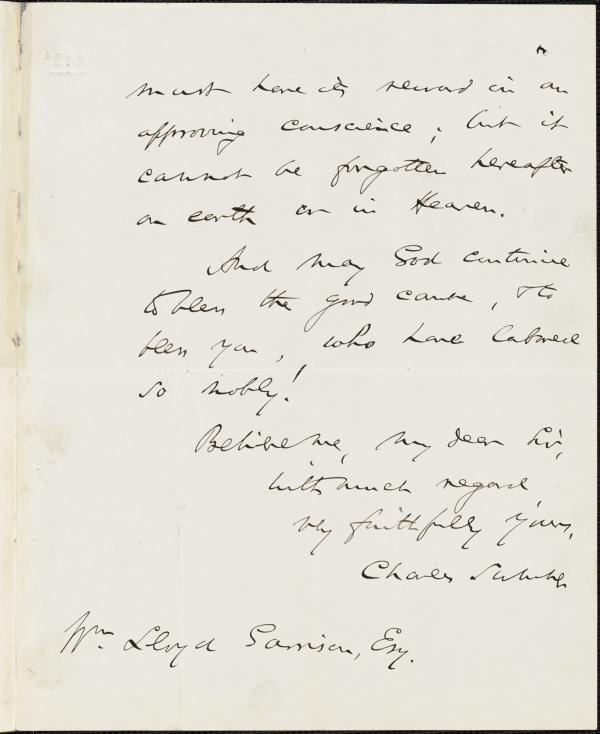 must have its reward in an
approving conscience; but it
cannot be forgotten hereafter
on earth or in Heaven.
And may God continue
to bless the good cause, & to
bless you, who have labored
so nobly!
Believe me, my dear Sir,
with much regard
very faithfully Yours,
Charles Sumner
Wm. Lloyd Garrison, Esq.